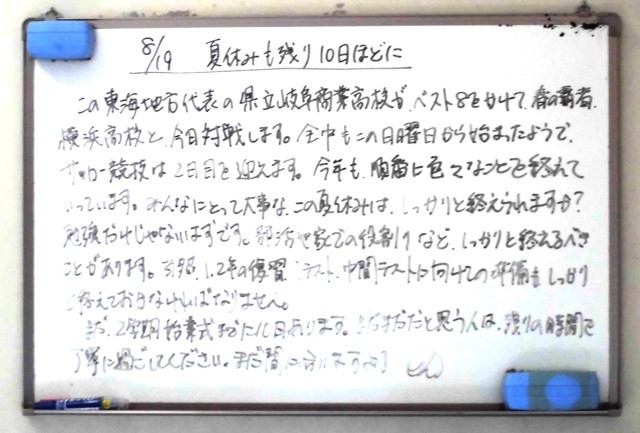 8/19 夏休みも残り10日ほどに
この東海地方代表の県立岐阜商業高校が、ベスト8をかけて、春の覇者、
横浜高校と、今日対戦します。全中もこの日曜日から始まったようで、
サッカー競技は2日目を迎えます。今年も、順番に色々なことを終えて
いっています。みんなにとって大事な、この夏休みは、しっかりと終えられますか?
勉強だけじゃないはずです。部活や家での役割りなど、しっかりと終えるべき
ことがあります。1、2年の復習テスト、中間テストに向けての準備も、しっかり
と終えておかなければなりません。
まだ、2学期始業式までに10日あります。まだまだだと思う人は、残りの時間を
丁寧に過ごしてください。まだ間に合いますよ!